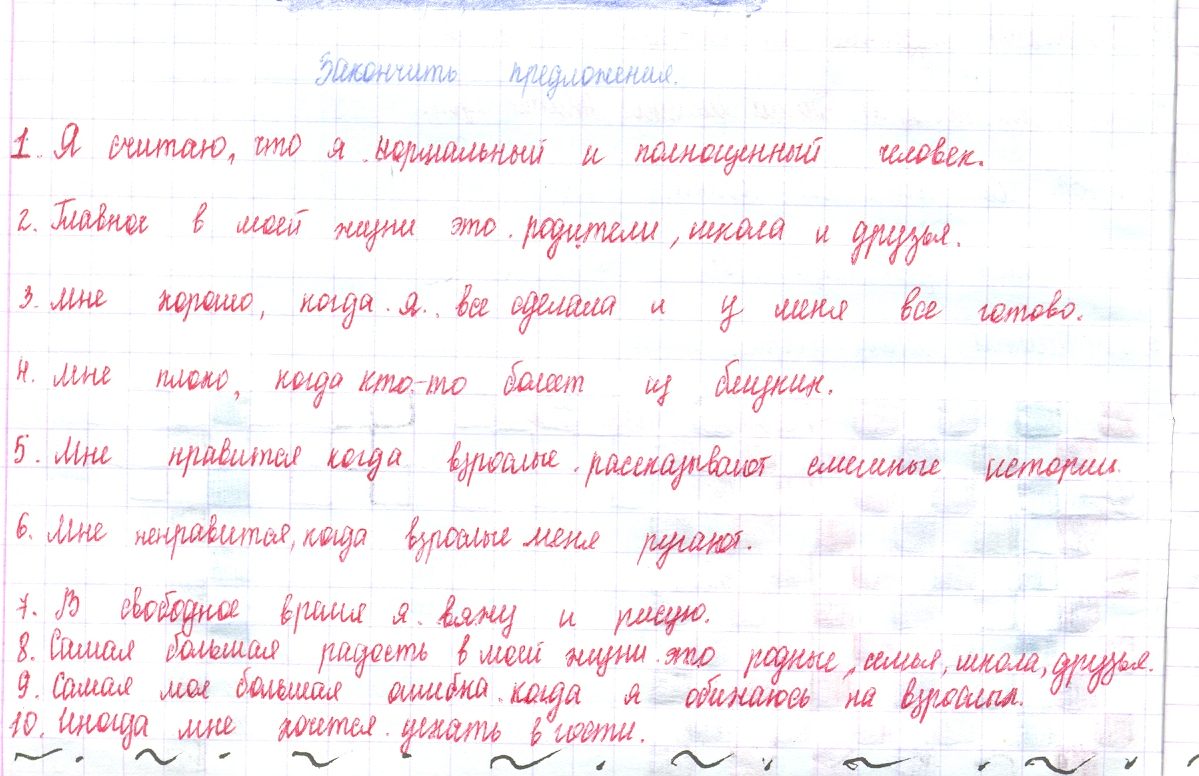 Закончить предложения.
1. Я считаю, что я нормальный и полноценный человек.
2. Главное в моей жизни это родители, школа и друзья.
3. Мне хорошо, когда я все сделала и у меня все готово.
4. Мне плохо, когда кто-то болеет из близких.
5. Мне нравится когда взрослые рассказывают смешные истории.
6. Мне ненравится, когда взрослые меня ругают.
7. В свободное время я вяжу и рисую.
8. Самая большая радость в моей жизни это родные, семья, школа, друзья.
9. Самая моя большая ошибка когда я обижаюсь на взрослых.
10. Иногда мне хочется уехать в гости.